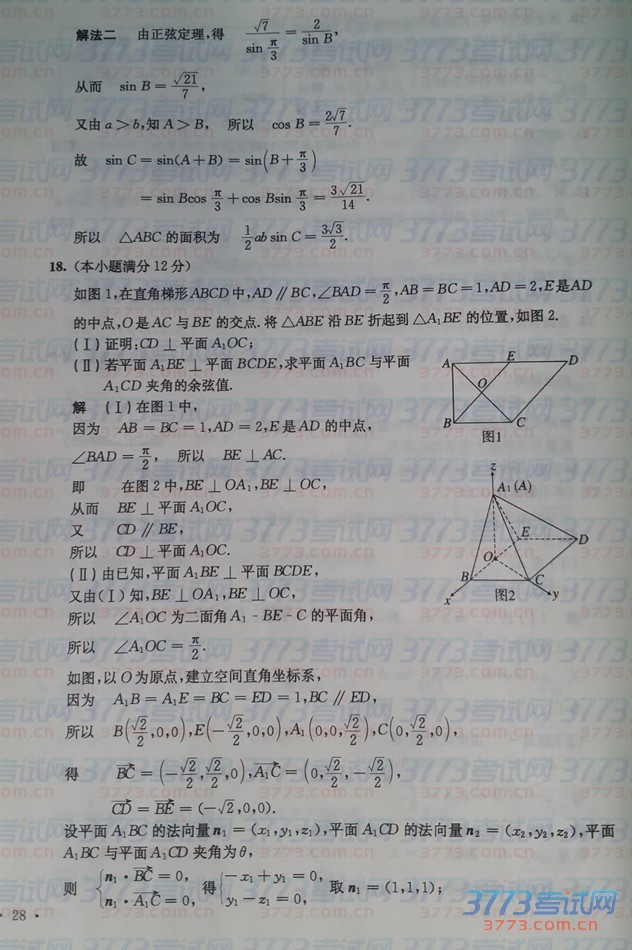 解法二 由正弦定理,得 √7/sin π/3 = 2/sin B,
从而 sin B = √21/7,
又由 a > b,知 A > B, 所以 cos B = 2√7/7.
故 sin C = sin(A + B) = sin(B + π/3)
= sin Bcos π/3 + cos Bsin π/3 = 3√21/14.
所以 △ABC 的面积为 1/2 ab sin C = 3√3/2.
18. (本小题满分 12 分)
如图 1,在直角梯形 ABCD 中,AD ∥ BC,∠BAD = π/2,AB = BC = 1,AD = 2,E 是 AD
的中点,O 是 AC 与 BE 的交点. 将 △ABE 沿 BE 折起到 △A₁BE 的位置,如图 2.
(Ⅰ) 证明:CD ⊥ 平面 A₁OC;
(Ⅱ) 若平面 A₁BE ⊥ 平面 BCDE,求平面 A₁BC 与平面
A₁CD 夹角的余弦值.
A E D
O
B C
图1
解 (Ⅰ) 在图 1 中,
因为 AB = BC = 1,AD = 2,E 是 AD 的中点,
∠BAD = π/2, 所以 BE ⊥ AC.
即 在图 2 中,BE ⊥ OA₁,BE ⊥ OC,
从而 BE ⊥ 平面 A₁OC,
又 CD ∥ BE,
所以 CD ⊥ 平面 A₁OC.
z
A₁ (A)
E D
O
B C
x 图2 y
(Ⅱ) 由已知,平面 A₁BE ⊥ 平面 BCDE,
又由(Ⅰ) 知,BE ⊥ OA₁,BE ⊥ OC,
所以 ∠A₁OC 为二面角 A₁ - BE - C 的平面角,
所以 ∠A₁OC = π/2.
如图,以 O 为原点,建立空间直角坐标系,
因为 A₁B = A₁E = BC = ED = 1,BC ∥ ED,
所以 B(√2/2,0,0),E(-√2/2,0,0),A₁(0,0,√2/2),C(0,√2/2,0),
得 BC→ = (-√2/2,√2/2,0),A₁C→ = (0,√2/2,-√2/2),
CD→ = BE→ = (-√2,0,0).
设平面 A₁BC 的法向量 n₁ = (x₁,y₁,z₁),平面 A₁CD 的法向量 n₂ = (x₂,y₂,z₂),平面
A₁BC 与平面 A₁CD 夹角为 θ,
则 { n₁ · BC→ = 0, n₁ · A₁C→ = 0, 得 { -x₁ + y₁ = 0, y₁ - z₁ = 0, 取 n₁ = (1,1,1);
· 28 ·
3773考试网
3773.com.cn